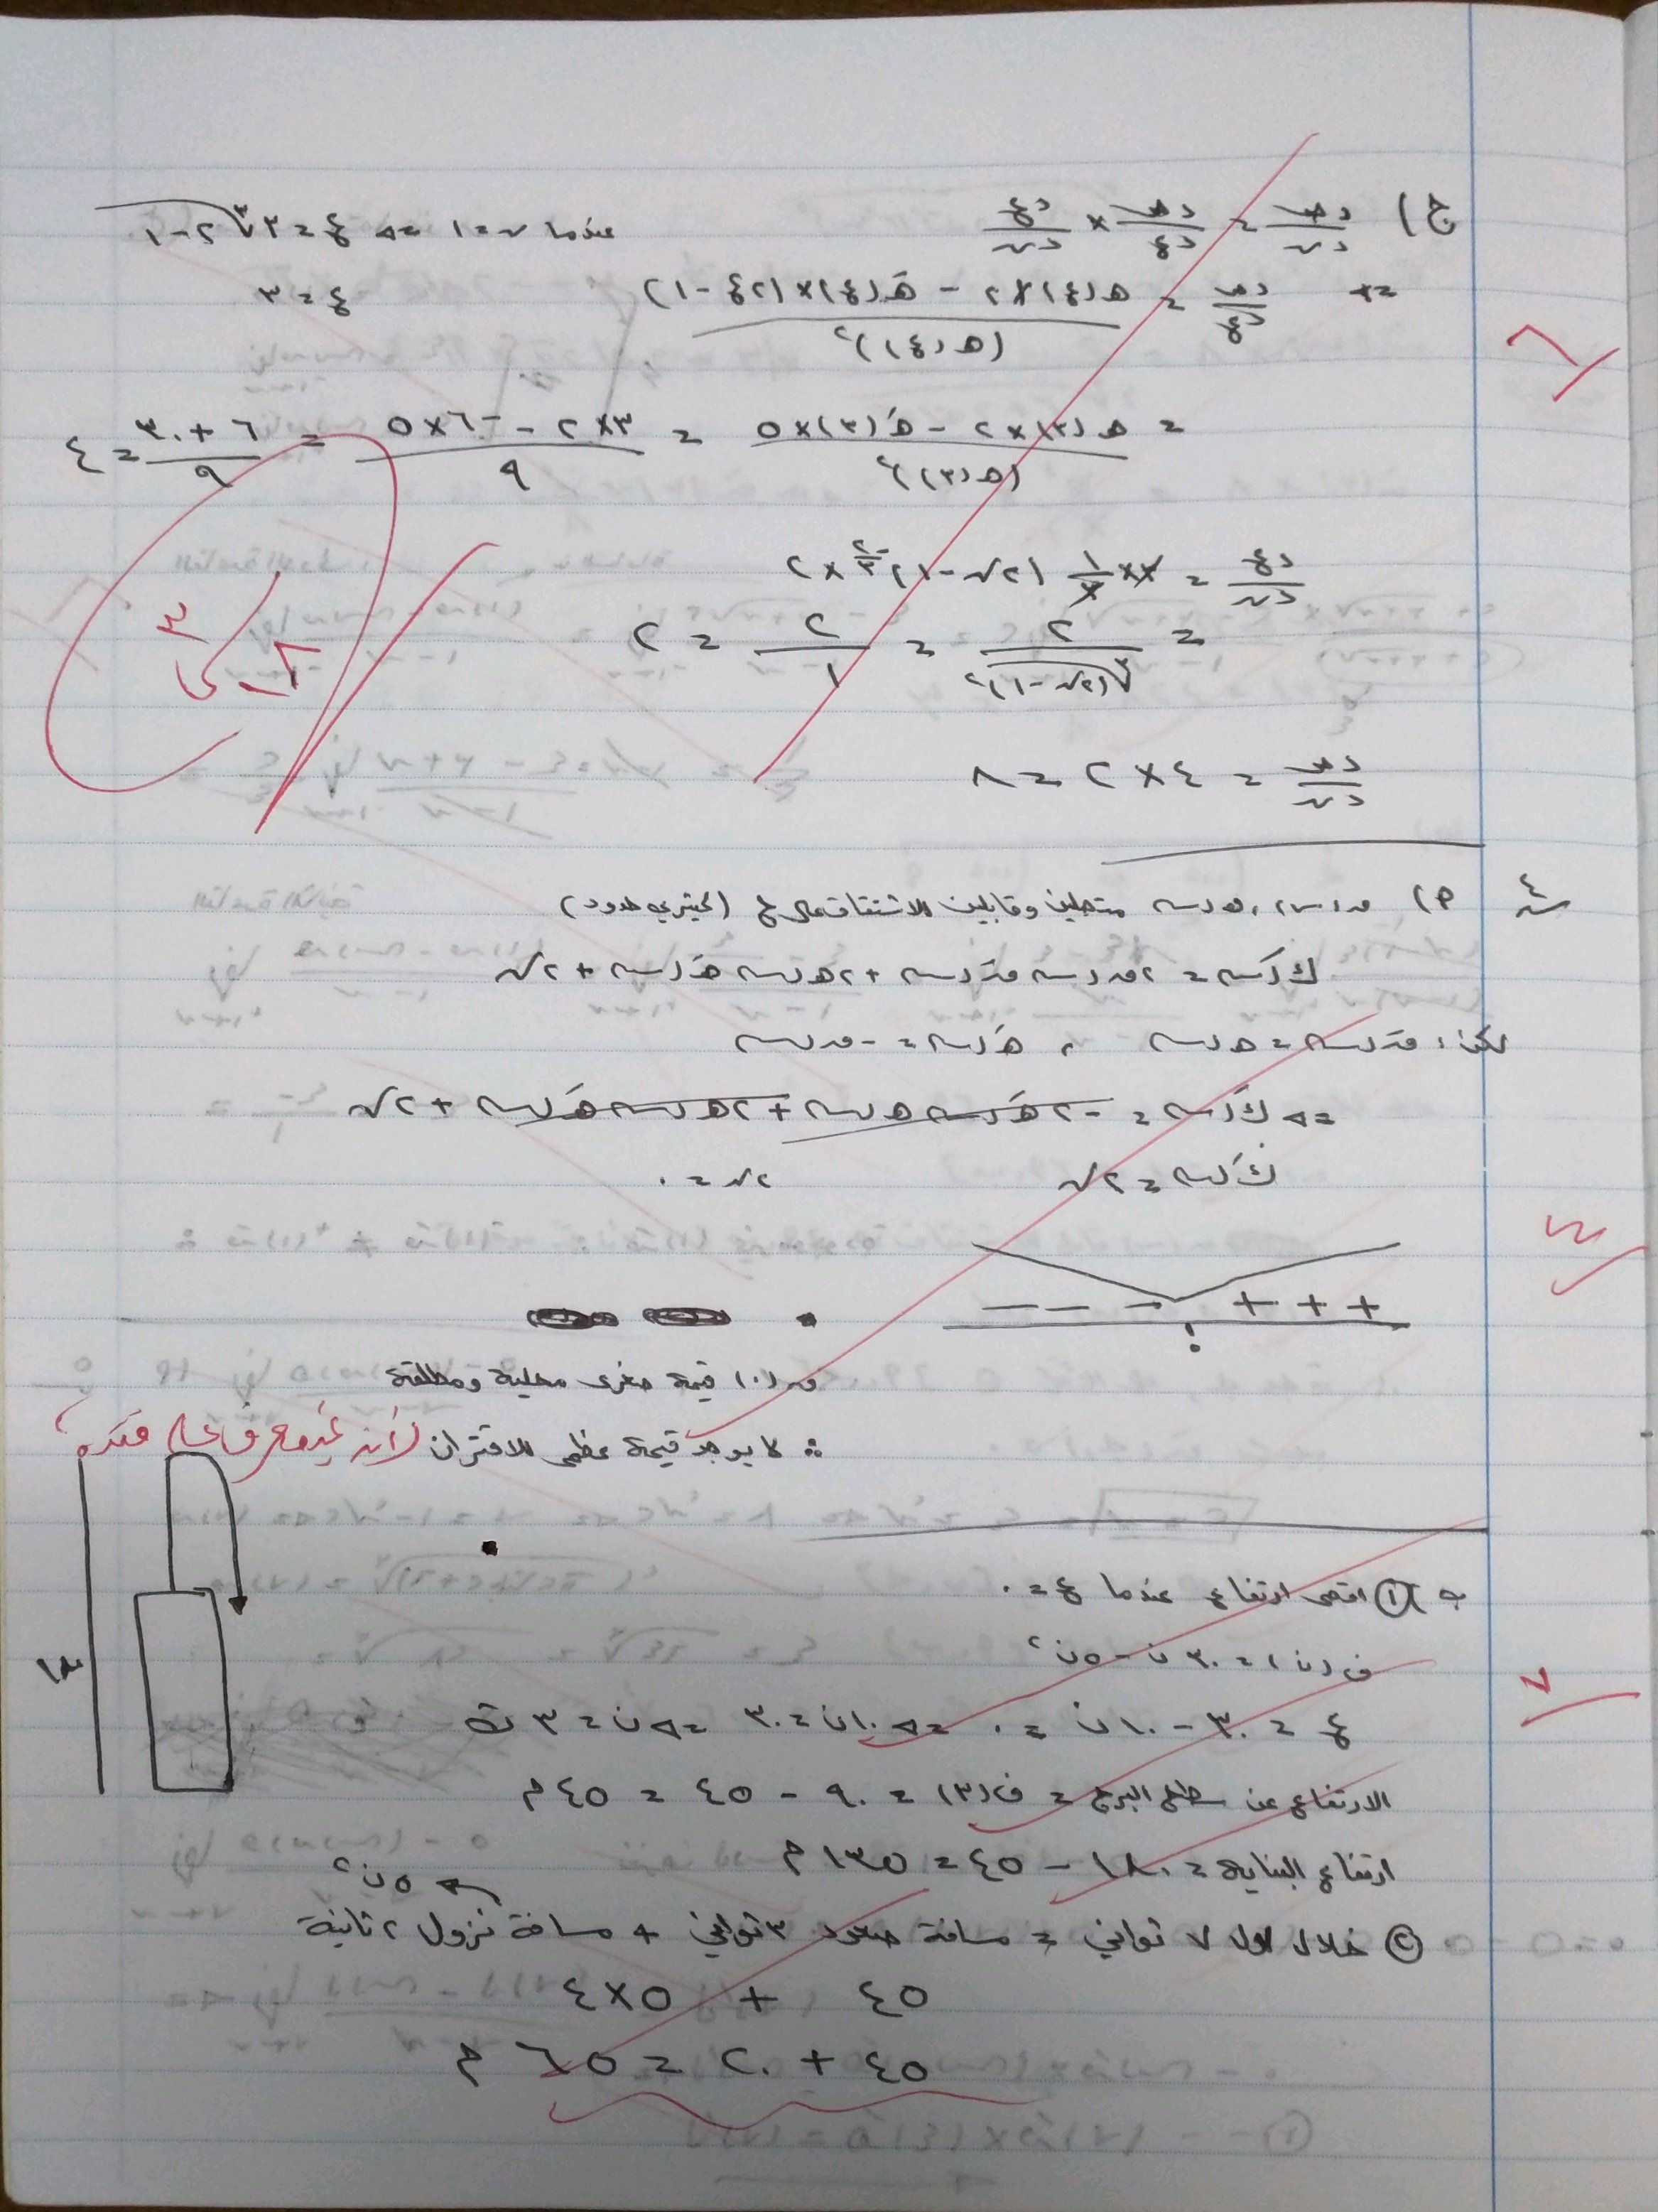 ج) دص/دس = دص/دع × دع/دس
عندما س = ١ => ع = ٣ ∛(٢-١)
=> دص/دع = (هـ(ع)×٢ - هـَ(ع)×(٢ع-١)) / (هـ(ع))^٢
ع = ٣
= (هـ(٣)×٢ - هـَ(٣)×٥) / (هـ(٣))^٢ = (٣×٢ - -٦×٥) / ٩ = (٦ + ٣٠) / ٩ = ٤
دع/دس = ٣ × ١/٣ (٢س-١)^(-٢/٣) × ٢
= ٢ / ∛(٢س-١)^٢ = ٢/١ = ٢
دص/دس = ٤ × ٢ = ٨
٦
س٤ ٢) متصلين وقابلين للاشتقاق على ح (كثيري حدود)
كَ(س) = ٢ق(س) قَ(س) + ٢هـ(س) هـَ(س) + ٢س
لكن: قَ(س) = هـ(س) ، هـَ(س) = -ق(س)
=> كَ(س) = -٢هـَ(س) هـ(س) + ٢هـ(س) هـَ(س) + ٢س
كَ(س) = ٢س ٢س = ٠
- - - + + +
٠
ق(٠) قيمة صغرى محلية ومطلقة
∴ لا يوجد قيمة عظمى للاقتران
ب) ① اقصى ارتفاع عندما ع = ٠
ف(ن) = ٣٠ن - ٥ن^٢
ع = ٣٠ - ١٠ن = ٠ => ١٠ن = ٣٠ => ن = ٣ ث
الارتفاع عن سطح البرج = ف(٣) = ٩٠ - ٤٥ = ٤٥ م
ارتفاع البناية = ١٨٠ - ٤٥ = ١٣٥ م
٥ن^٢
② خلال اول ٧ ثواني = مسافة صعود ٣ ثواني + مسافة نزول ٢ ثانية
٤٥ + ٥×٤
٤٥ + ٢٠ = ٦٥ م